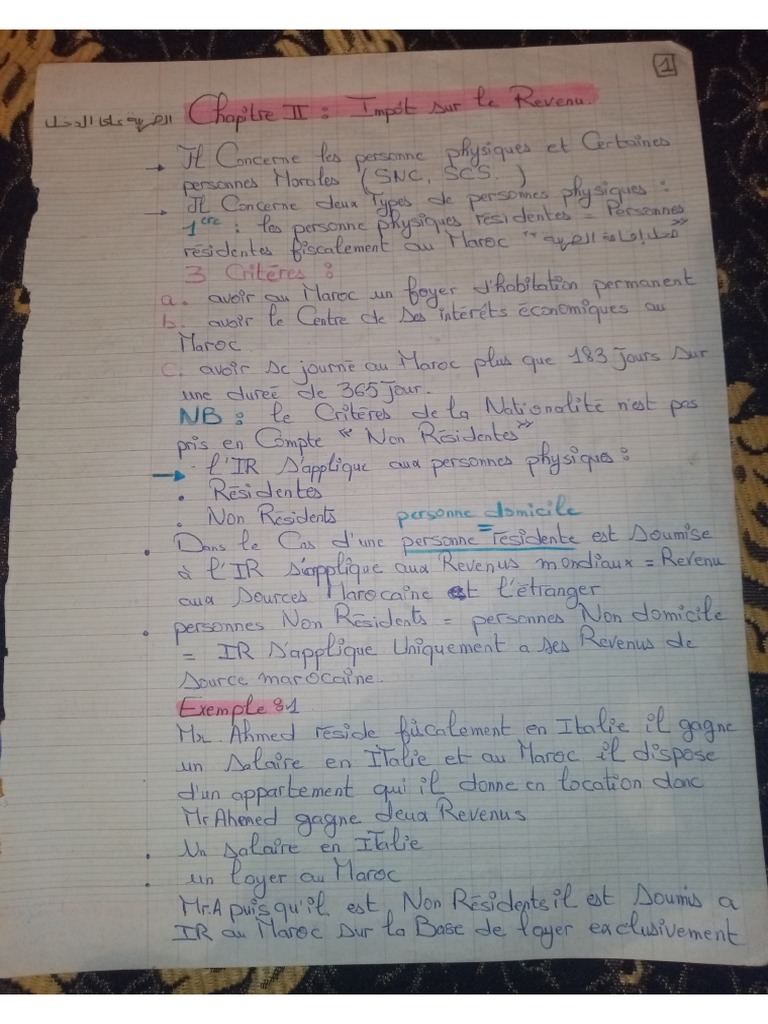 1
الضريبة على الدخل Chapitre II : Impôt sur le Revenu.
→ Il Concerne les personne physiques et Certaines
personnes Morales (SNC, SCS. )
→ Il Concerne deux Types de personnes physiques :
1ère : les personne physiques résidentes = Personnes
résidentes fiscalement au Maroc "محل إقامة الضريبة"
3 Critéres :
a. avoir au Maroc un foyer d'habitation permanent
b. avoir le Centre de ses intéréts économiques au
Maroc
C. avoir se journé au Maroc plus que 183 jours sur
une dureé de 365 jour.
NB : le Critéres de la Nationalité n'est pas
pris en Compte "Non Résidentes"
→ l'IR s'applique aux personnes physiques :
• Résidentes
• Non Résidents personne domicile
• Dans le Cas d'une personne = résidente est soumise
à l'IR s'applique aux Revenus mondiaux = Revenu
aux sources Marocaine et l'étranger
• personnes Non Résidents = personnes Non domicile
= IR s'applique Uniquement a ses Revenus de
source marocaine.
Exemple 1
Mr. Ahmed réside fiscalement en Italie il gagne
un salaire en Italie et au Maroc il dispose
d'un appartement qui il donne en location donc
Mr Ahemed gagne deux Revenus
• Un salaire en Italie
• un loyer au Maroc
Mr.A puis qu'il est, Non Résidents il est soumis a
IR au Maroc sur la Base de loyer exclusivement